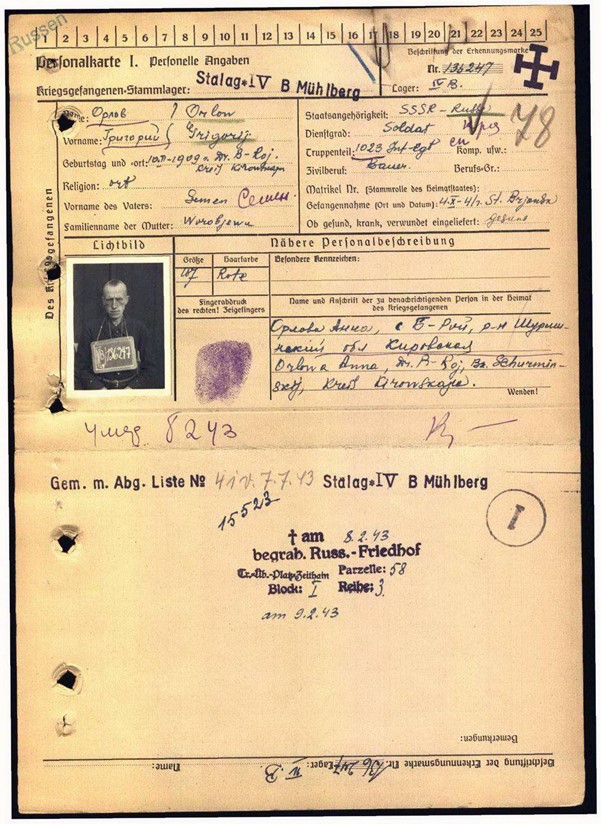 Russen
1 2 3 4 5 6 7 8 9 10 11 12 13 14 15 16 17 18 19 20 21 22 23 24 25
Personalkarte I. Personelle Angaben
Beschriftung der Erkennungsmarke
Nr. 136247
Kriegsgefangenen-Stammlager: Stalag IV B Mühlberg
Lager: IV B.
Des Kriegsgefangenen
Name: Орлов / Orlow
Staatsangehörigkeit: SSSR - Russe
Vorname: Григорий / Grigorij
Dienstgrad: Soldat
78
Truppenteil: 1023 Inf-Rgt Komp. usw.:
Geburtstag und -ort:
Zivilberuf: Bauer. Berufs-Gr.:
Religion: ort
Matrikel Nr. (Stammrolle des Heimatstaates):
Vorname des Vaters: Semen Семен
Gefangennahme (Ort und Datum):
Familienname der Mutter: Worobjewa
Ob gesund, krank, verwundet eingeliefert: gesund
Lichtbild
Nähere Personalbeschreibung
Größe Haarfarbe Besondere Kennzeichen:
Rote
Fingerabdruck
des rechten! Zeigefingers
Name und Anschrift der zu benachrichtigenden Person in der Heimat
des Kriegsgefangenen
136247
Орлова Анна, с Б-Рой, р-н Шурмин-
ский обл Кировская
Orlowa Anna, Dr. B-Roj, Bz. Schurmin-
skij, Kreis Kirowskaja.
Wenden!
Умер 8 2 43
Gem. m. Abg. Liste No 7.7.43 Stalag IV B Mühlberg
15523
I
† am 8.2.43
begrab. Russ.-Friedhof
Tr.-Üb.-Platz Zeithain Parzelle: 58
Block: I Reihe: 3
am 9.2.43
Bemerkungen:
Name:
Lager: IV B
Beschriftung der Erkennungsmarke Nr. 136247